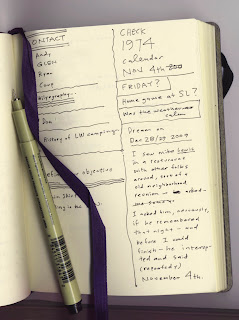 CONTACT
Andy
GLEN
Ryan
Cove
Bibliography...
Don
History of LW camping
objective
CHECK
1974
calendar
NOV 4th
FRIDAY?
Home game at SL?
Was the weather
calm
Dream on
Dec 28/09 2009
I saw mike Lewis
in a restaurant
with other folks
around, sort of a
old neighborhood
reunion -
I asked him, nervously,
if he remembered
that night - and
before I could
finish - he interrup-
ted and said
(repeatedly)
November 4th.